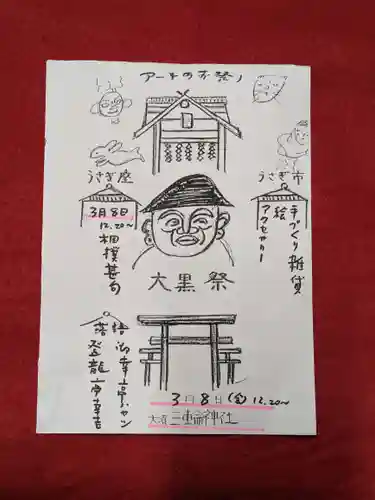 アートのお祭り
うさぎ座
3月8日
12.20〜
相撲甚句
うさぎ市
手づくり雑貨
絵
アクセサリー
大黒祭
落語
登龍亭幸吉
3月8日(金)12.20〜
大須三輪神社